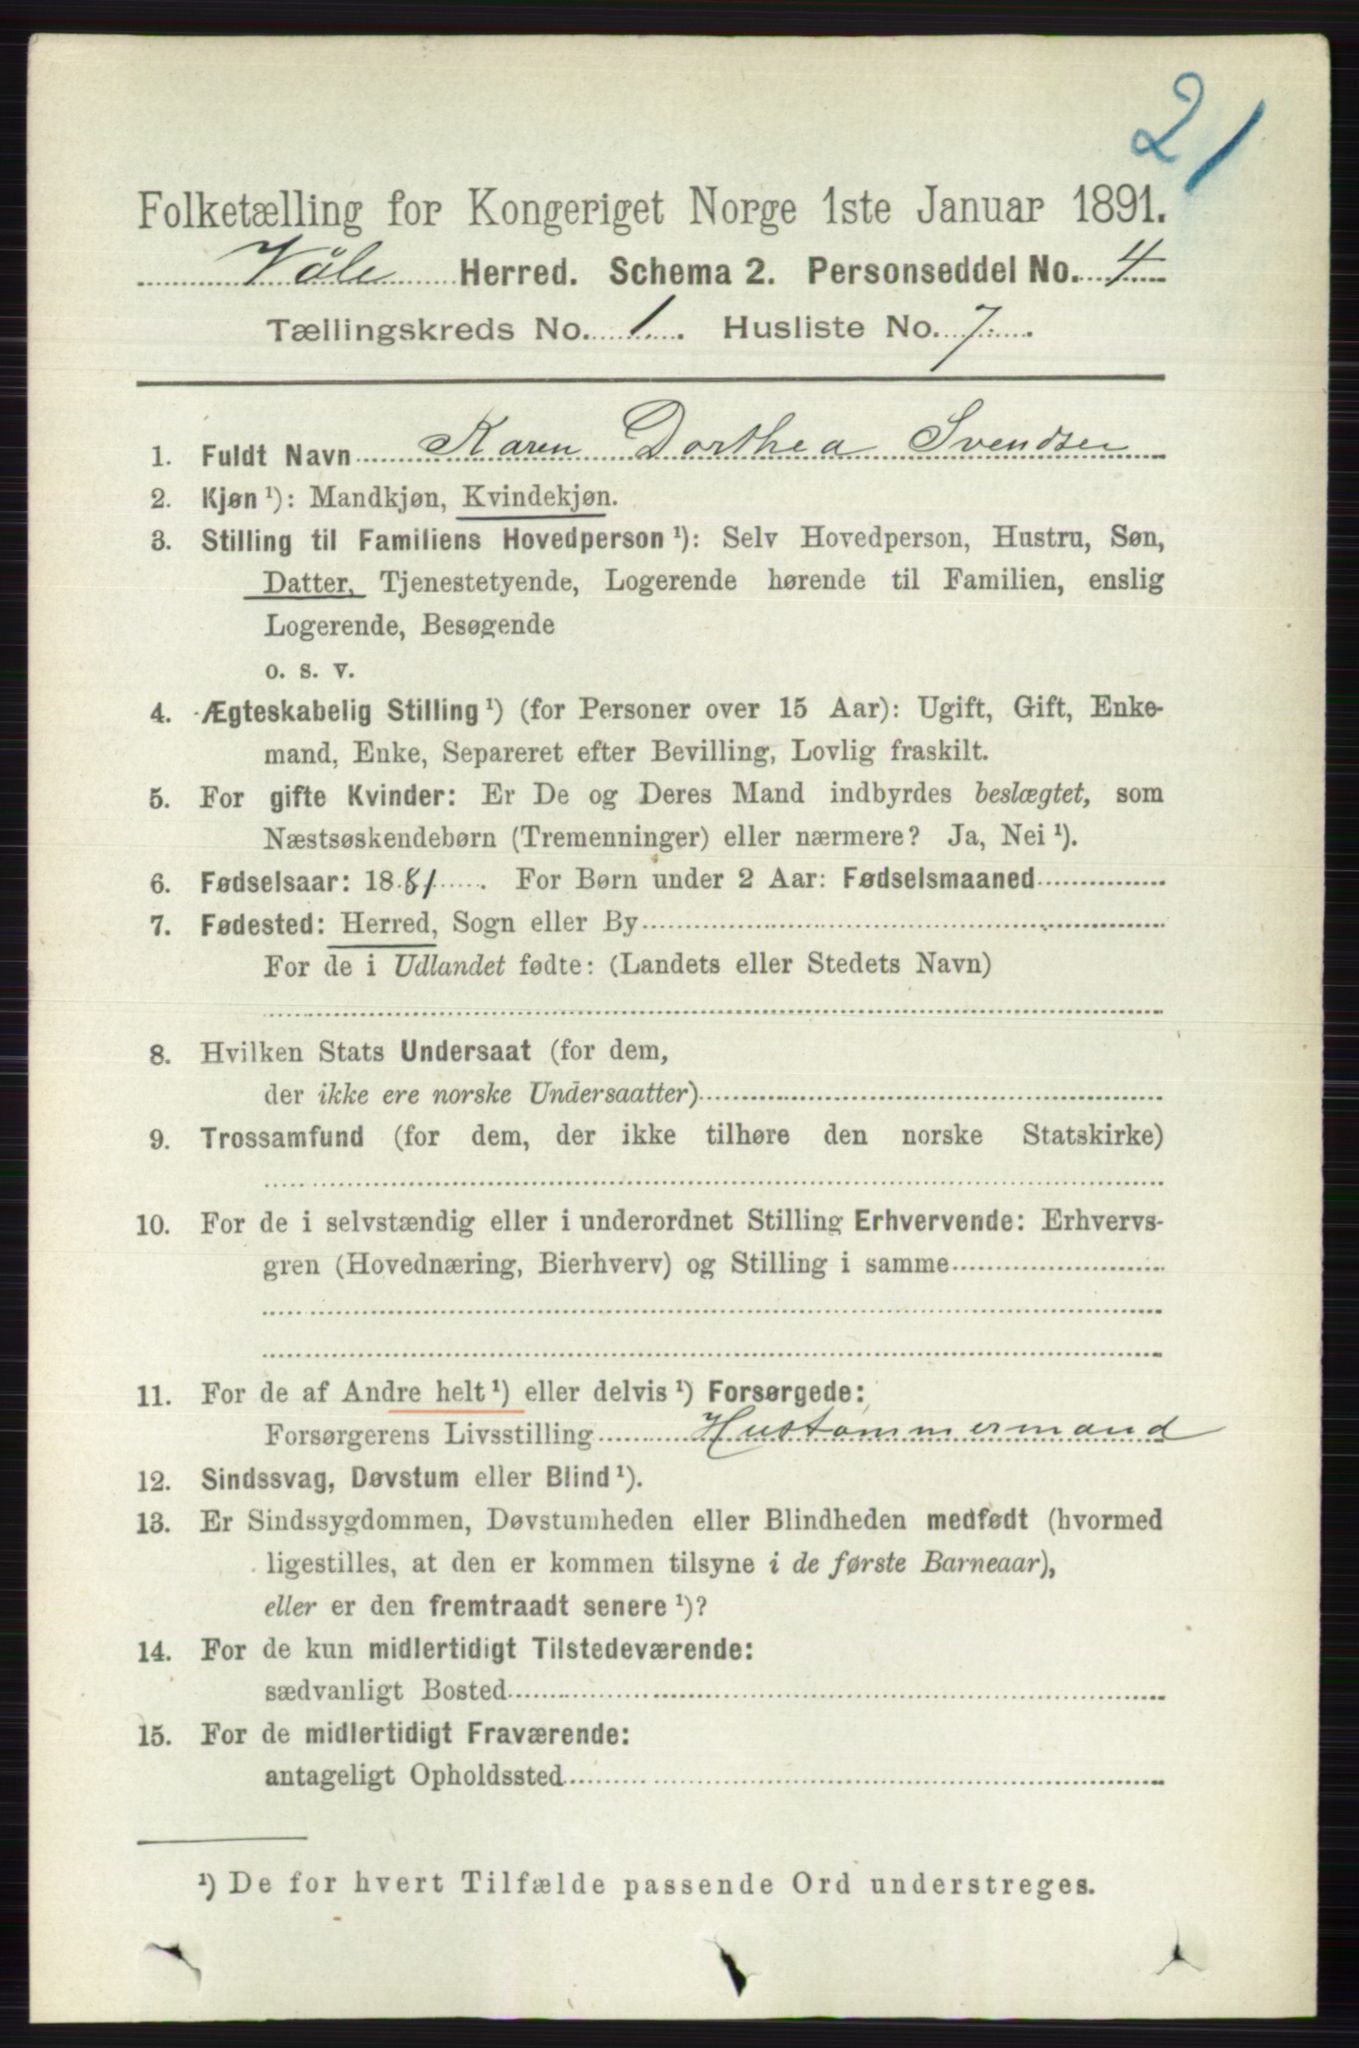 21
Folketælling for Kongeriget Norge 1ste Januar 1891.
Våle Herred. Schema 2. Personseddel No. 4
Tællingskreds No. 1. Husliste No. 7
1. Fuldt Navn Karen Dorthea Svendsen
2. Kjøn ¹): Mandkjøn, Kvindekjøn.
3. Stilling til Familiens Hovedperson ¹): Selv Hovedperson, Hustru, Søn,
Datter, Tjenestetyende, Logerende hørende til Familien, enslig
Logerende, Besøgende
o. s. v.
4. Ægteskabelig Stilling ¹) (for Personer over 15 Aar): Ugift, Gift, Enke-
mand, Enke, Separeret efter Bevilling, Lovlig fraskilt.
5. For gifte Kvinder: Er De og Deres Mand indbyrdes beslægtet, som
Næstsøskendebørn (Tremenninger) eller nærmere? Ja, Nei ¹).
6. Fødselsaar: 1881. For Børn under 2 Aar: Fødselsmaaned
7. Fødested: Herred, Sogn eller By
For de i Udlandet fødte: (Landets eller Stedets Navn)
8. Hvilken Stats Undersaat (for dem,
der ikke ere norske Undersaatter)
9. Trossamfund (for dem, der ikke tilhøre den norske Statskirke)
10. For de i selvstændig eller i underordnet Stilling Erhvervende: Erhvervs-
gren (Hovednæring, Bierhverv) og Stilling i samme
11. For de af Andre helt ¹) eller delvis ¹) Forsørgede:
Forsørgerens Livsstilling Hustømmermand
12. Sindssvag, Døvstum eller Blind ¹).
13. Er Sindssygdommen, Døvstumheden eller Blindheden medfødt (hvormed
ligestilles, at den er kommen tilsyne i de første Barneaar),
eller er den fremtraadt senere ¹)?
14. For de kun midlertidigt Tilstedeværende:
sædvanligt Bosted
15. For de midlertidigt Fraværende:
antageligt Opholdssted
¹) De for hvert Tilfælde passende Ord understreges.